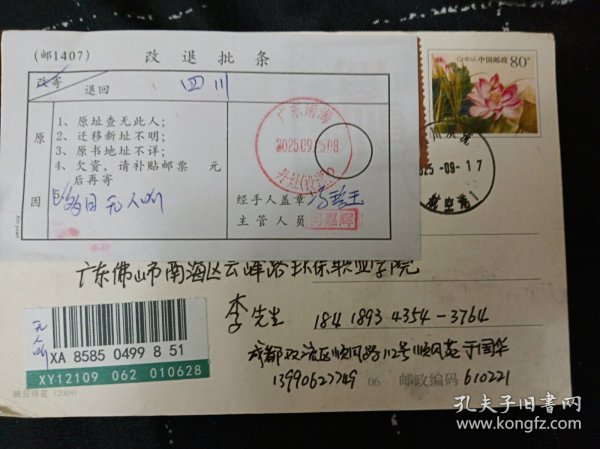 (邮1407) 改退批条
改寄
退回
四川
原
因
1、原址查无此人；
2、迁移新址不明；
3、原书地址不详；
4、欠资、请补贴邮票 元
后再寄
多日无人领
广东南海
2025.09.25.08
经手人盖章
主管人员
中国邮政
80分
2025-09-17
航空港
广东佛山市南海区云峰路环保职业学院
李先生 184 1893 4354-3764
成都双流区顺风路112号顺风苑于国华
13990627749 06 邮政编码 610221
无人领
XA 8585 0499 8 51
XY12109 062 010628
映日荷花 (2009)
孔夫子旧书网